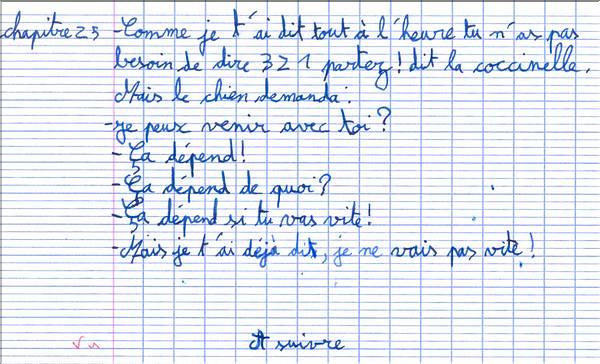 chapitre 25 - Comme je t'ai dit tout à l'heure tu n'as pas
besoin de dire 3 2 1 partez ! dit la coccinelle.
Mais le chien demanda :
- je peux venir avec toi ?
- Ça dépend !
- Ça dépend de quoi ?
- Ça dépend si tu vas vite !
- Mais je t'ai déjà dit, je ne vais pas vite !
Vu
A suivre